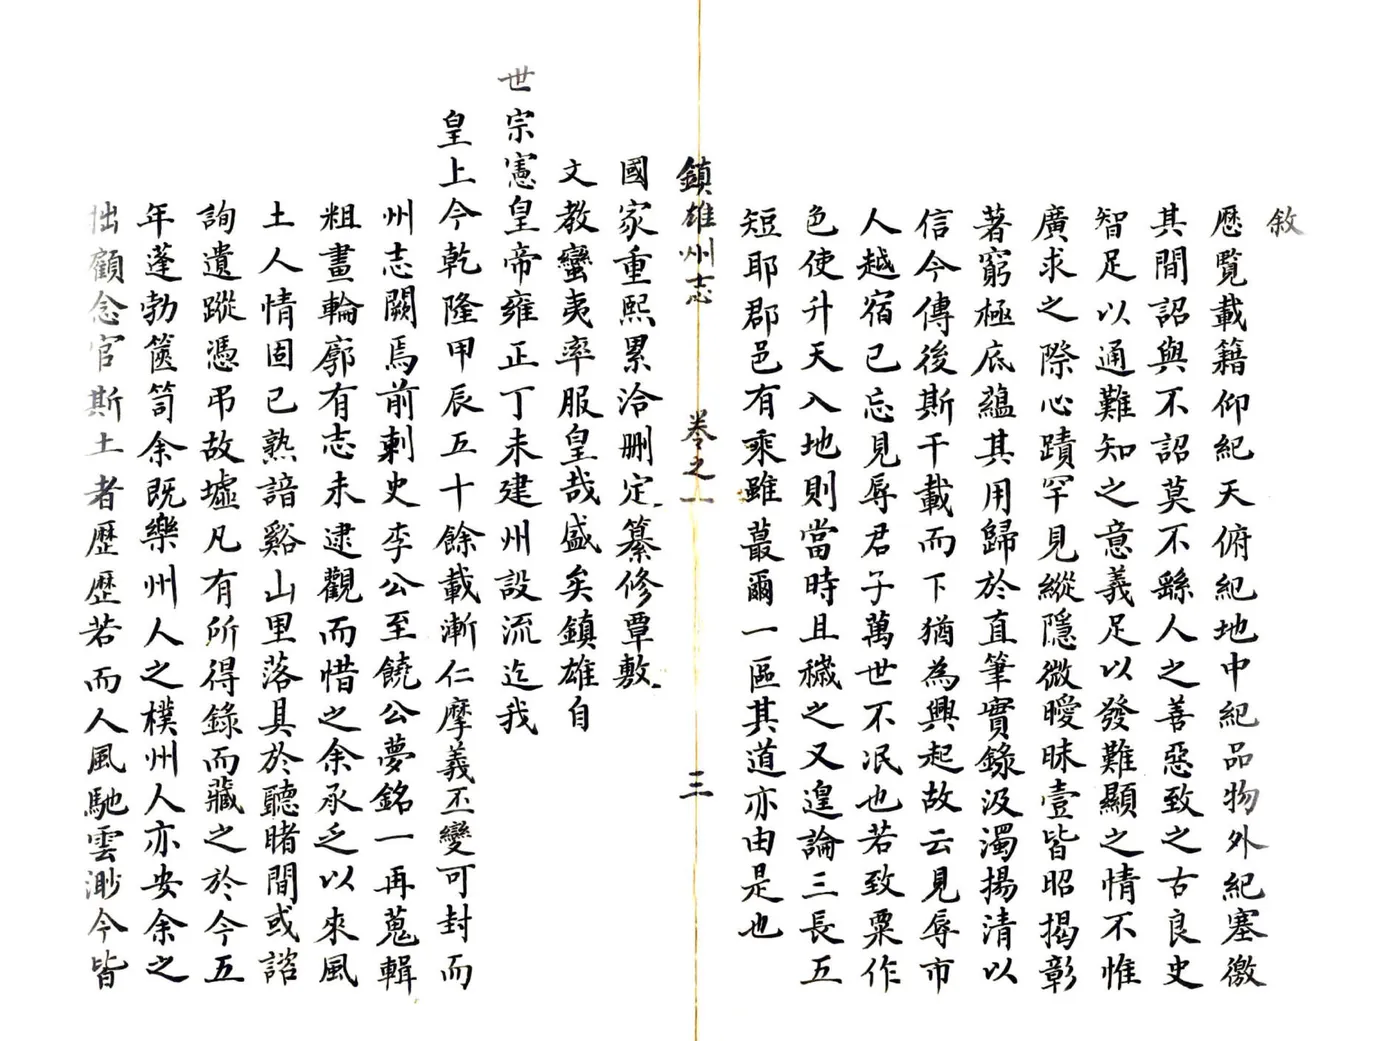 敘
歷覽載籍仰紀天俯紀地中紀品物外紀塞徼
其間詔與不詔莫不繇人之善惡致之古良史
智足以通難知之意義足以發難顯之情不惟
廣求之際心蹟罕見縱隱微曖昧壹皆昭揭彰
著窮極底蘊其用歸於直筆實錄汲濁揚清以
信今傳後斯千載而下猶為興起故云見辱市
人越宿已忘見辱君子萬世不泯也若致粟作
色使升天入地則當時且穢之又遑論三長五
短耶郡邑有乘雖蕞爾一區其道亦由是也
鎮雄州志 卷之一 三
國家重熙累洽刪定纂修覃敷
文教蠻夷率服皇哉盛矣鎮雄自
世宗憲皇帝雍正丁未建州設流迄我
皇上今乾隆甲辰五十餘載漸仁摩義丕變可封而
州志闕焉前刺史李公至饒公夢銘一再蒐輯
粗畫輪廓有志未逮觀而惜之余承乏以來風
土人情固已熟諳谿山里落具於聽睹間或諮
詢遺蹤憑弔故墟凡有所得錄而藏之於今五
年蓬勃篋笥余既樂州人之樸州人亦安余之
拙顧念官斯土者歷歷若而人風馳雲渺今皆